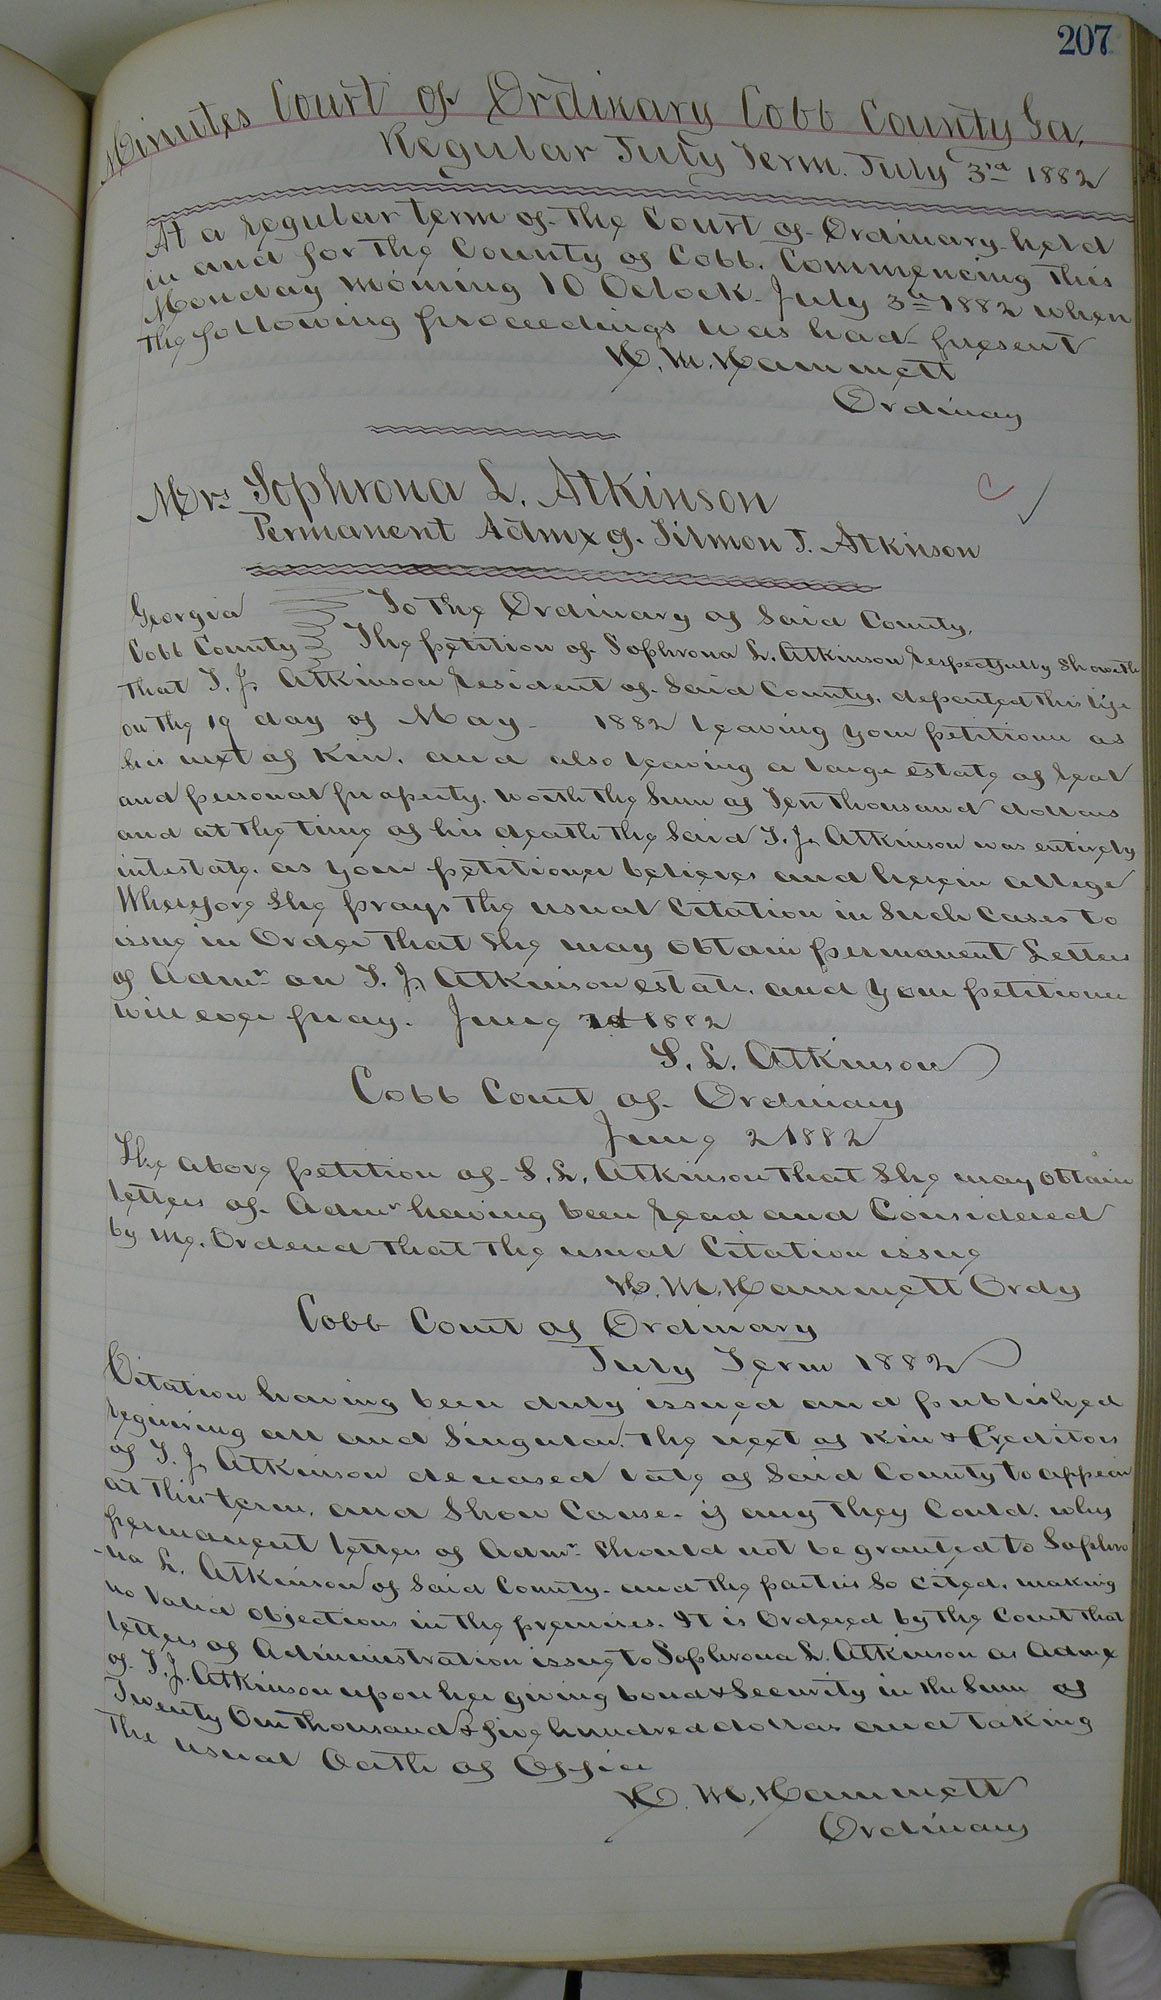 207
Minutes Court of Ordinary Cobb County Ga,
Regular July Term. July 3rd 1882
At a regular term of the Court of Ordinary held
in and for the County of Cobb. Commencing this
Monday morning 10 Oclock July 3d 1882 when
the following proceedings was had present
H. M. Hammett
Ordinay
Mrs Sophrona L. Atkinson
Permanent Admx of Tilmon J. Atkinson
Georgia To the Ordinary of Said County,
Cobb County The petition of Sophrona L. Atkinson respectfully showeth
that T. J. Atkinson resident of Said County, departed this life
on the 19 day of May 1882 leaving your petitioner as
his next of kin, and also leaving a large estate of real
and personal property. worth the Sum of Ten thousand dollars
and at the time of his death the Said T. J. Atkinson was entirely
intestate. as your petitioner believes and herein allege
Wherefore She prays the usual Citation in Such Cases to
issue in Order that She may obtain permanent Letters
of Admr on T. J. Atkinson estate. and your petitioner
will ever pray. June 2d 1882
S. L. Atkinson
Cobb Court of Ordinary
June 2 1882
The above petition of S. L. Atkinson that She may obtain
letters of Admr having been read and Considered
by me. Ordered that the usual Citation issue
H. M. Hammett Ordy
Cobb Court of Ordinary
July Term 1882
Citation having been duly issued and published
requiring all and Singular. the next of kin & Creditors
of T. J. Atkinson deceased late of Said County to appear
at this term, and Show Cause. if any they Could. why
permanent letters of Admr Should not be granted to Sophro
-na L. Atkinson of Said County. and the parties So cited, making
no Valid objections in the premises. It is Ordered by the Court that
letters of Administration issue to Sophrona L. Atkinson as Admx
of T. J. Atkinson upon her giving bond & Security in the Sum of
Twenty One thousand & five hundred dollars and taking
the usual Oath of Office
H. M. Hammett
Ordinary